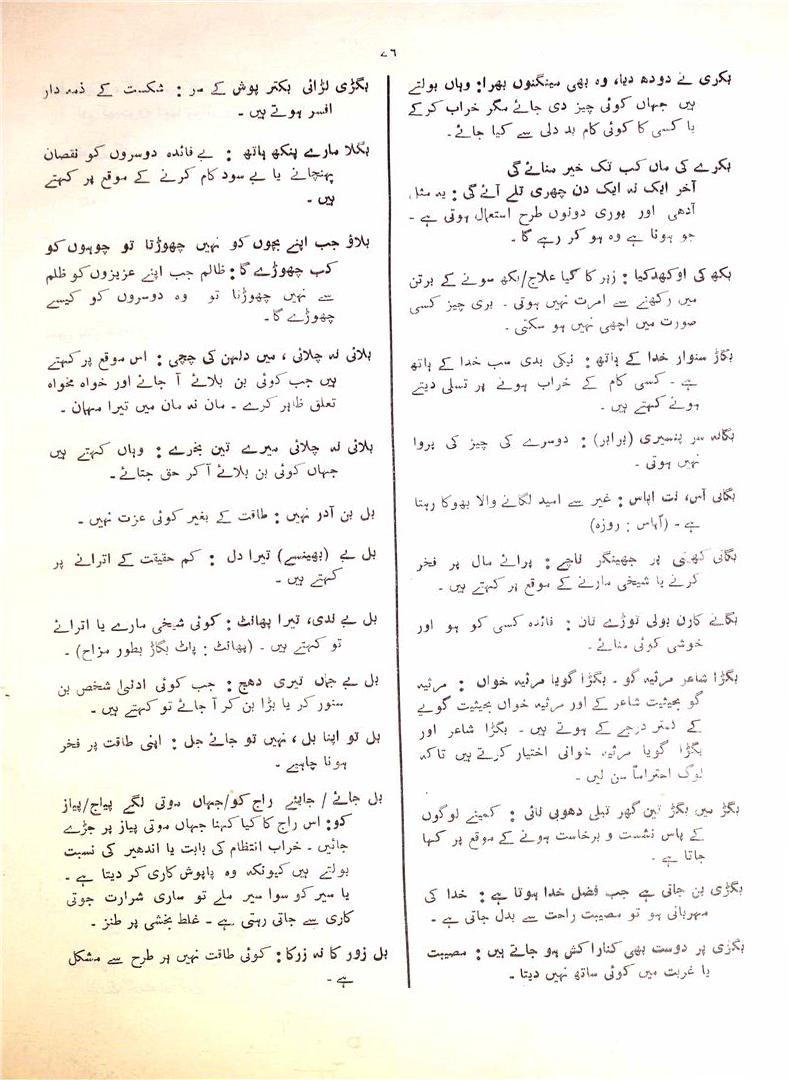 ۷٦
بکری نے دودھ دیا، وہ بھی مینگنوں بھرا: وہاں بولتے
ہیں جہاں کوئی چیز دی جائے مگر خراب کرکے
یا کسی کا کوئی کام بد دلی سے کیا جائے۔
بکرے کی ماں کب تک خیر منائے گی
آخر ایک نہ ایک دن چھری تلے آئے گی: یہ مثل
آدھی اور پوری دونوں طرح استعمال ہوتی ہے۔
جو ہونا ہے وہ ہو کر رہے گا۔
بکھ کی اوکھدکیا: زہر کا کیا علاج/بکھ سونے کے برتن
میں رکھنے سے امرت نہیں ہوتی۔ بری چیز کسی
صورت میں اچھی نہیں ہو سکتی۔
بگاڑ سنوار خدا کے ہاتھ: نیکی بدی سب خدا کے ہاتھ
ہے۔ کسی کام کے خراب ہونے پر تسلی دیتے
ہوئے کہتے ہیں۔
بگانہ سر پنسیری (برابر): دوسرے کی چیز کی پروا
نہیں ہوتی۔
بگانی آس، نت اپاس: غیر سے امید لگانے والا بھوکا رہتا
ہے۔ (اُپاس: روزہ)
بگانی کھیتی پر جھینگر ناچے: پرائے مال پر فخر
کرنے یا شیخی مارنے کے موقع پر کہتے ہیں۔
بگانے کارن بولی توڑے تان: فائدہ کسی کو ہو اور
خوشی کوئی منائے۔
بگڑا شاعر مرثیہ گو۔ بگڑا گویا مرثیہ خواں: مرثیہ
گو بحیثیت شاعر کے اور مرثیہ خواں بحیثیت گویے
کے کمتر درجے کے ہوتے ہیں۔ بگڑا شاعر اور
بگڑا گویا مرثیہ خوانی اختیار کرتے ہیں تاکہ
لوگ احتراماً سن لیں۔
بگڑ میں بگڑ تین گھر تیلی دھوبی نائی: کمینے لوگوں
کے پاس نشست و برخاست ہونے کے موقع پر کہا
جاتا ہے۔
بگڑی بن جاتی ہے جب فضل خدا ہوتا ہے: خدا کی
مہربانی ہو تو مصیبت راحت سے بدل جاتی ہے۔
بگڑی پر دوست بھی کنارا کش ہو جاتے ہیں: مصیبت
یا غربت میں کوئی ساتھ نہیں دیتا۔
بگڑی لڑائی بکتر پوش کے سر: شکست کے ذمہ دار
افسر ہوتے ہیں۔
بگلا مارے پنکھ ہاتھ: بے فائدہ دوسروں کو نقصان
پہنچانے یا بے سود کام کرنے کے موقع پر کہتے
ہیں۔
بلاؤ جب اپنے بچوں کو نہیں چھوڑتا تو چوہوں کو
کب چھوڑے گا: ظالم جب اپنے عزیزوں کو ظلم
سے نہیں چھوڑتا تو وہ دوسروں کو کیسے
چھوڑے گا۔
بلائی نہ چلائی، میں دلہن کی چچی: اس موقع پر کہتے
ہیں جب کوئی بن بلائے آ جائے اور خواہ مخواہ
تعلق ظاہر کرے۔ مان نہ مان میں تیرا مہمان۔
بلائی نہ چلائی میرے تین بخرے: وہاں کہتے ہیں
جہاں کوئی بن بلائے آ کر حق جتائے۔
بل بن آدر نہیں: طاقت کے بغیر کوئی عزت نہیں۔
بل بے (بھینسے) تیرا دل: کم حقیقت کے اترانے پر
کہتے ہیں۔
بل بے ندی، تیرا پھانٹ: کوئی شیخی مارے یا اترائے
تو کہتے ہیں۔ (پھانٹ: پاٹ بگاڑ بطور مزاح)۔
بل بے جہاں تیری دھج: جب کوئی ادنیٰ شخص بن
سنور کر یا بڑا بن کر آ جائے تو کہتے ہیں۔
بل تو اپنا بل، نہیں تو جائے جل: اپنی طاقت پر فخر
ہونا چاہیے۔
بل جائے/جایئے راج کو/جہاں موتی لگے پیاج/پیاز
کو: اس راج کا کیا کہنا جہاں موتی پیاز پر جڑے
جائیں۔ خراب انتظام کی بابت یا اندھیر کی نسبت
بولتے ہیں کیونکہ وہ پاپوش کاری کر دیتا ہے۔
یا سیر کو سوا سیر ملے تو ساری شرارت جوتی
کاری سے جاتی رہتی ہے۔ غلط بخشی پر طنز۔
بل زور کا نہ زرکا: کوئی طاقت نہیں ہر طرح سے مشکل
ہے۔